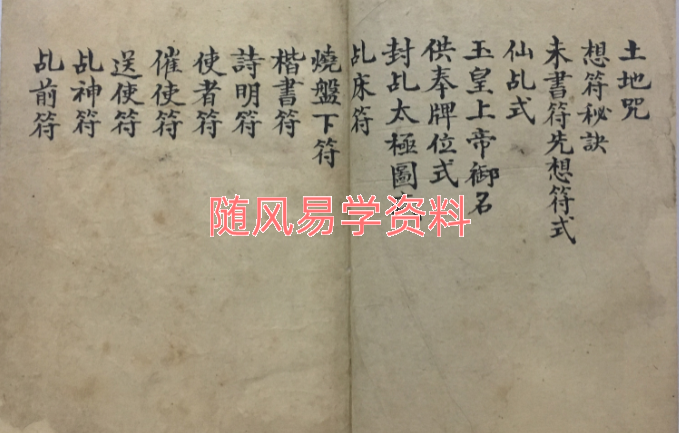 土地咒
想符秘訣
未書符先想符式
仙乩式
玉皇上帝御名
供奉牌位式
封乩太極圖
乩床符
燒盤下符
楷書符
詩明符
使者符
催使符
送使符
乩神符
乩前符
随风易学资料